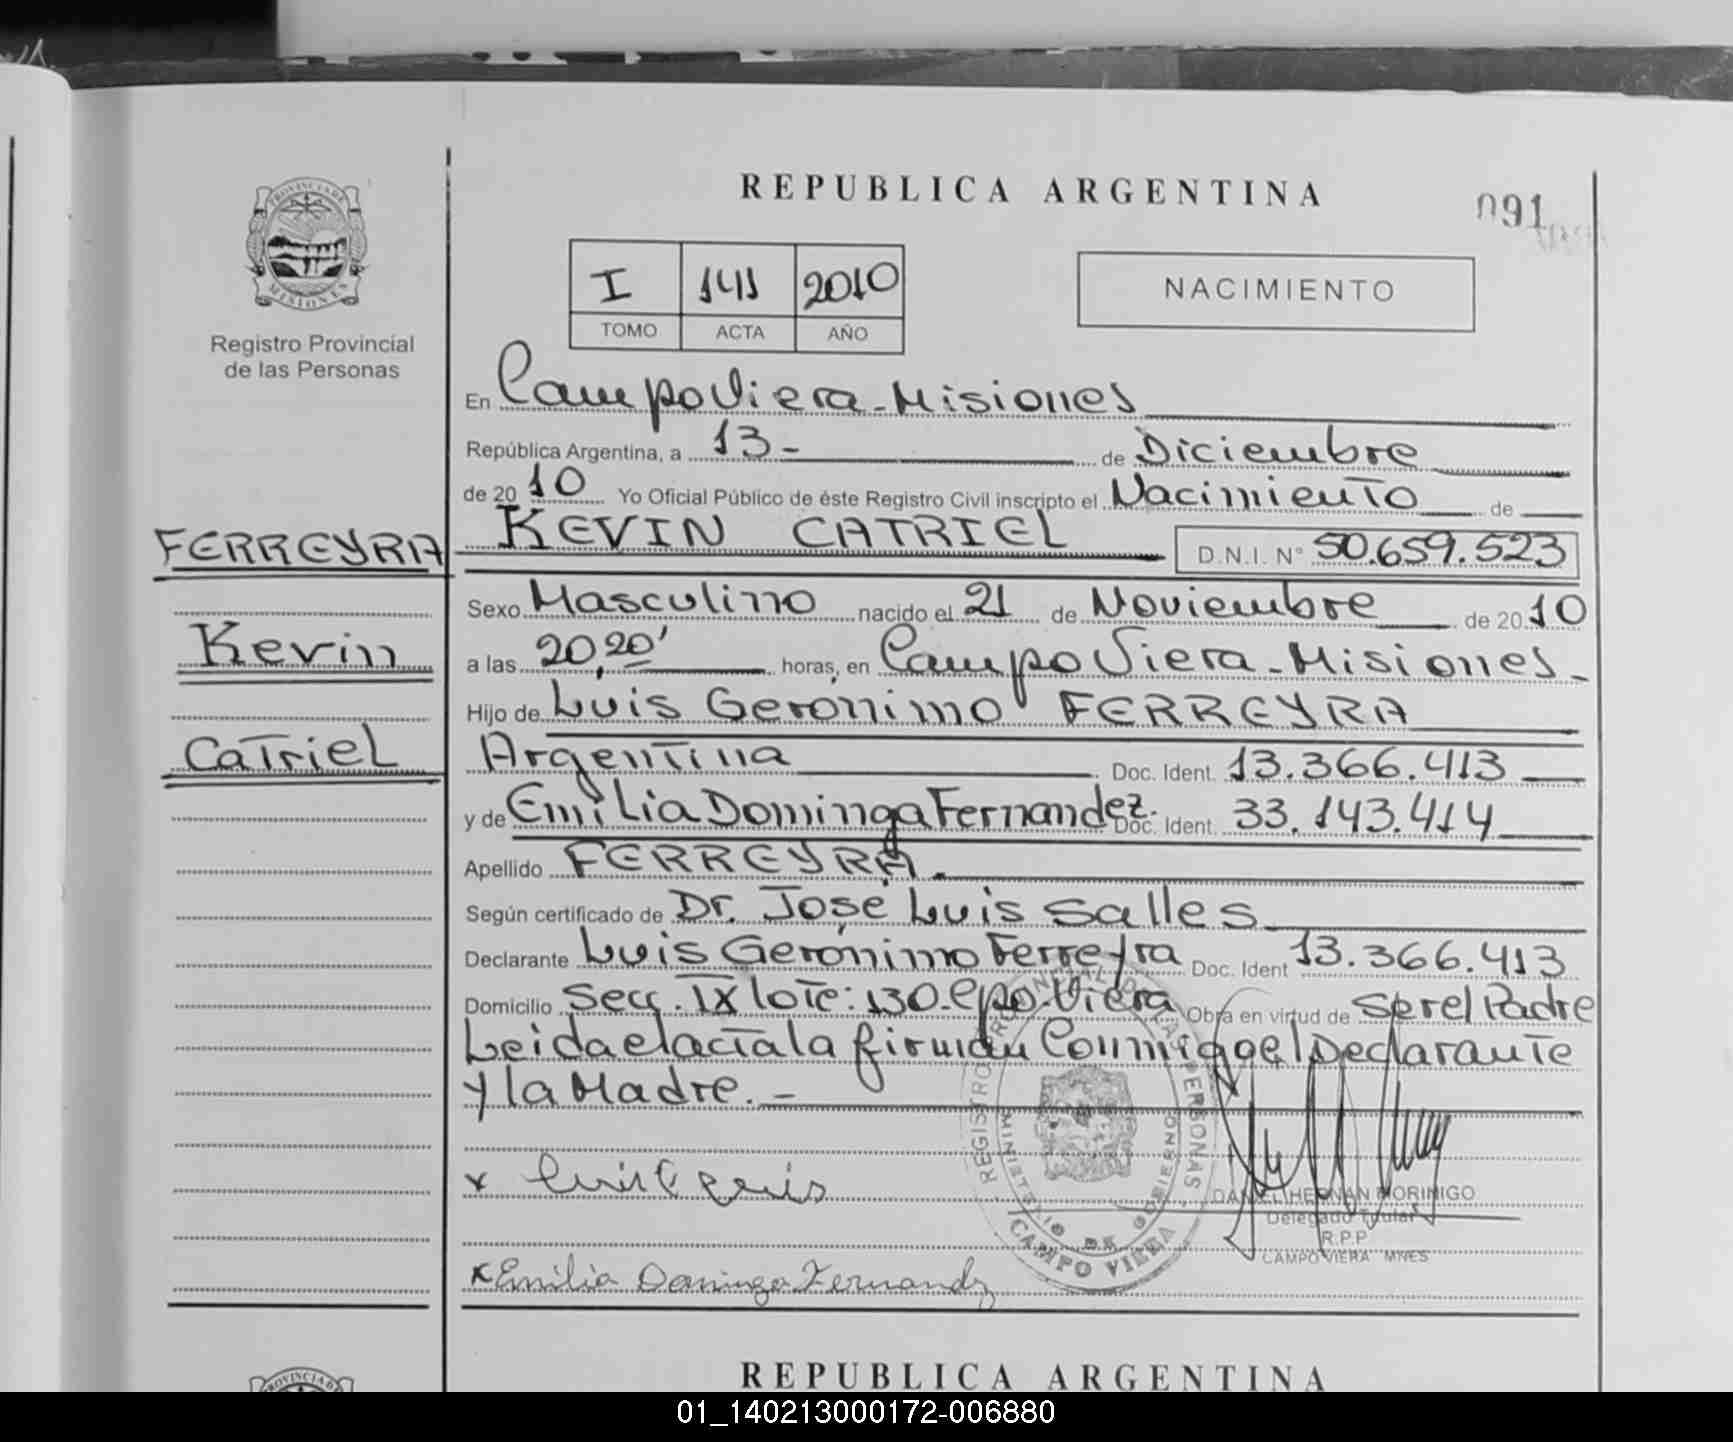 REPUBLICA ARGENTINA
091
PROVINCIA DE
MISIONES
Registro Provincial
de las Personas
I 141 2010
TOMO ACTA AÑO
NACIMIENTO
En Campo Viera - Misiones
República Argentina, a 13 - de Diciembre
de 20 10 Yo Oficial Público de éste Registro Civil inscripto el Nacimiento de
FERREYRA KEVIN CATRIEL D.N.I. Nº 50.659.523
Sexo Masculino nacido el 21 de Noviembre de 20 10
Kevin
a las 20,20' horas, en Campo Viera - Misiones -
Hijo de Luis Gerónimo FERREYRA
Catriel
Argentina Doc. Ident. 13.366.413
y de Emilia Dominga Fernandez. Doc. Ident. 33.143.414
Apellido FERREYRA.
Según certificado de Dr. José Luis Salles
Declarante Luis Gerónimo Ferreyra Doc. Ident 13.366.413
Domicilio Secc. IX lote: 130. Cpo. Viera Obra en virtud de Ser el Padre
Leida el acta la firman Conmigo el Declarante
y la Madre. -
REGISTRO PROVINCIAL DE LAS PERSONAS
MINISTERIO DE GOBIERNO
CAMPO VIERA
x
DANIEL HERNAN MORINIGO
Delegado Titular
R.P.P
CAMPO VIERA MNES
x Emilia Dominga Fernandz
REPUBLICA ARGENTINA
PROVINCIA DE
01_140213000172-006880